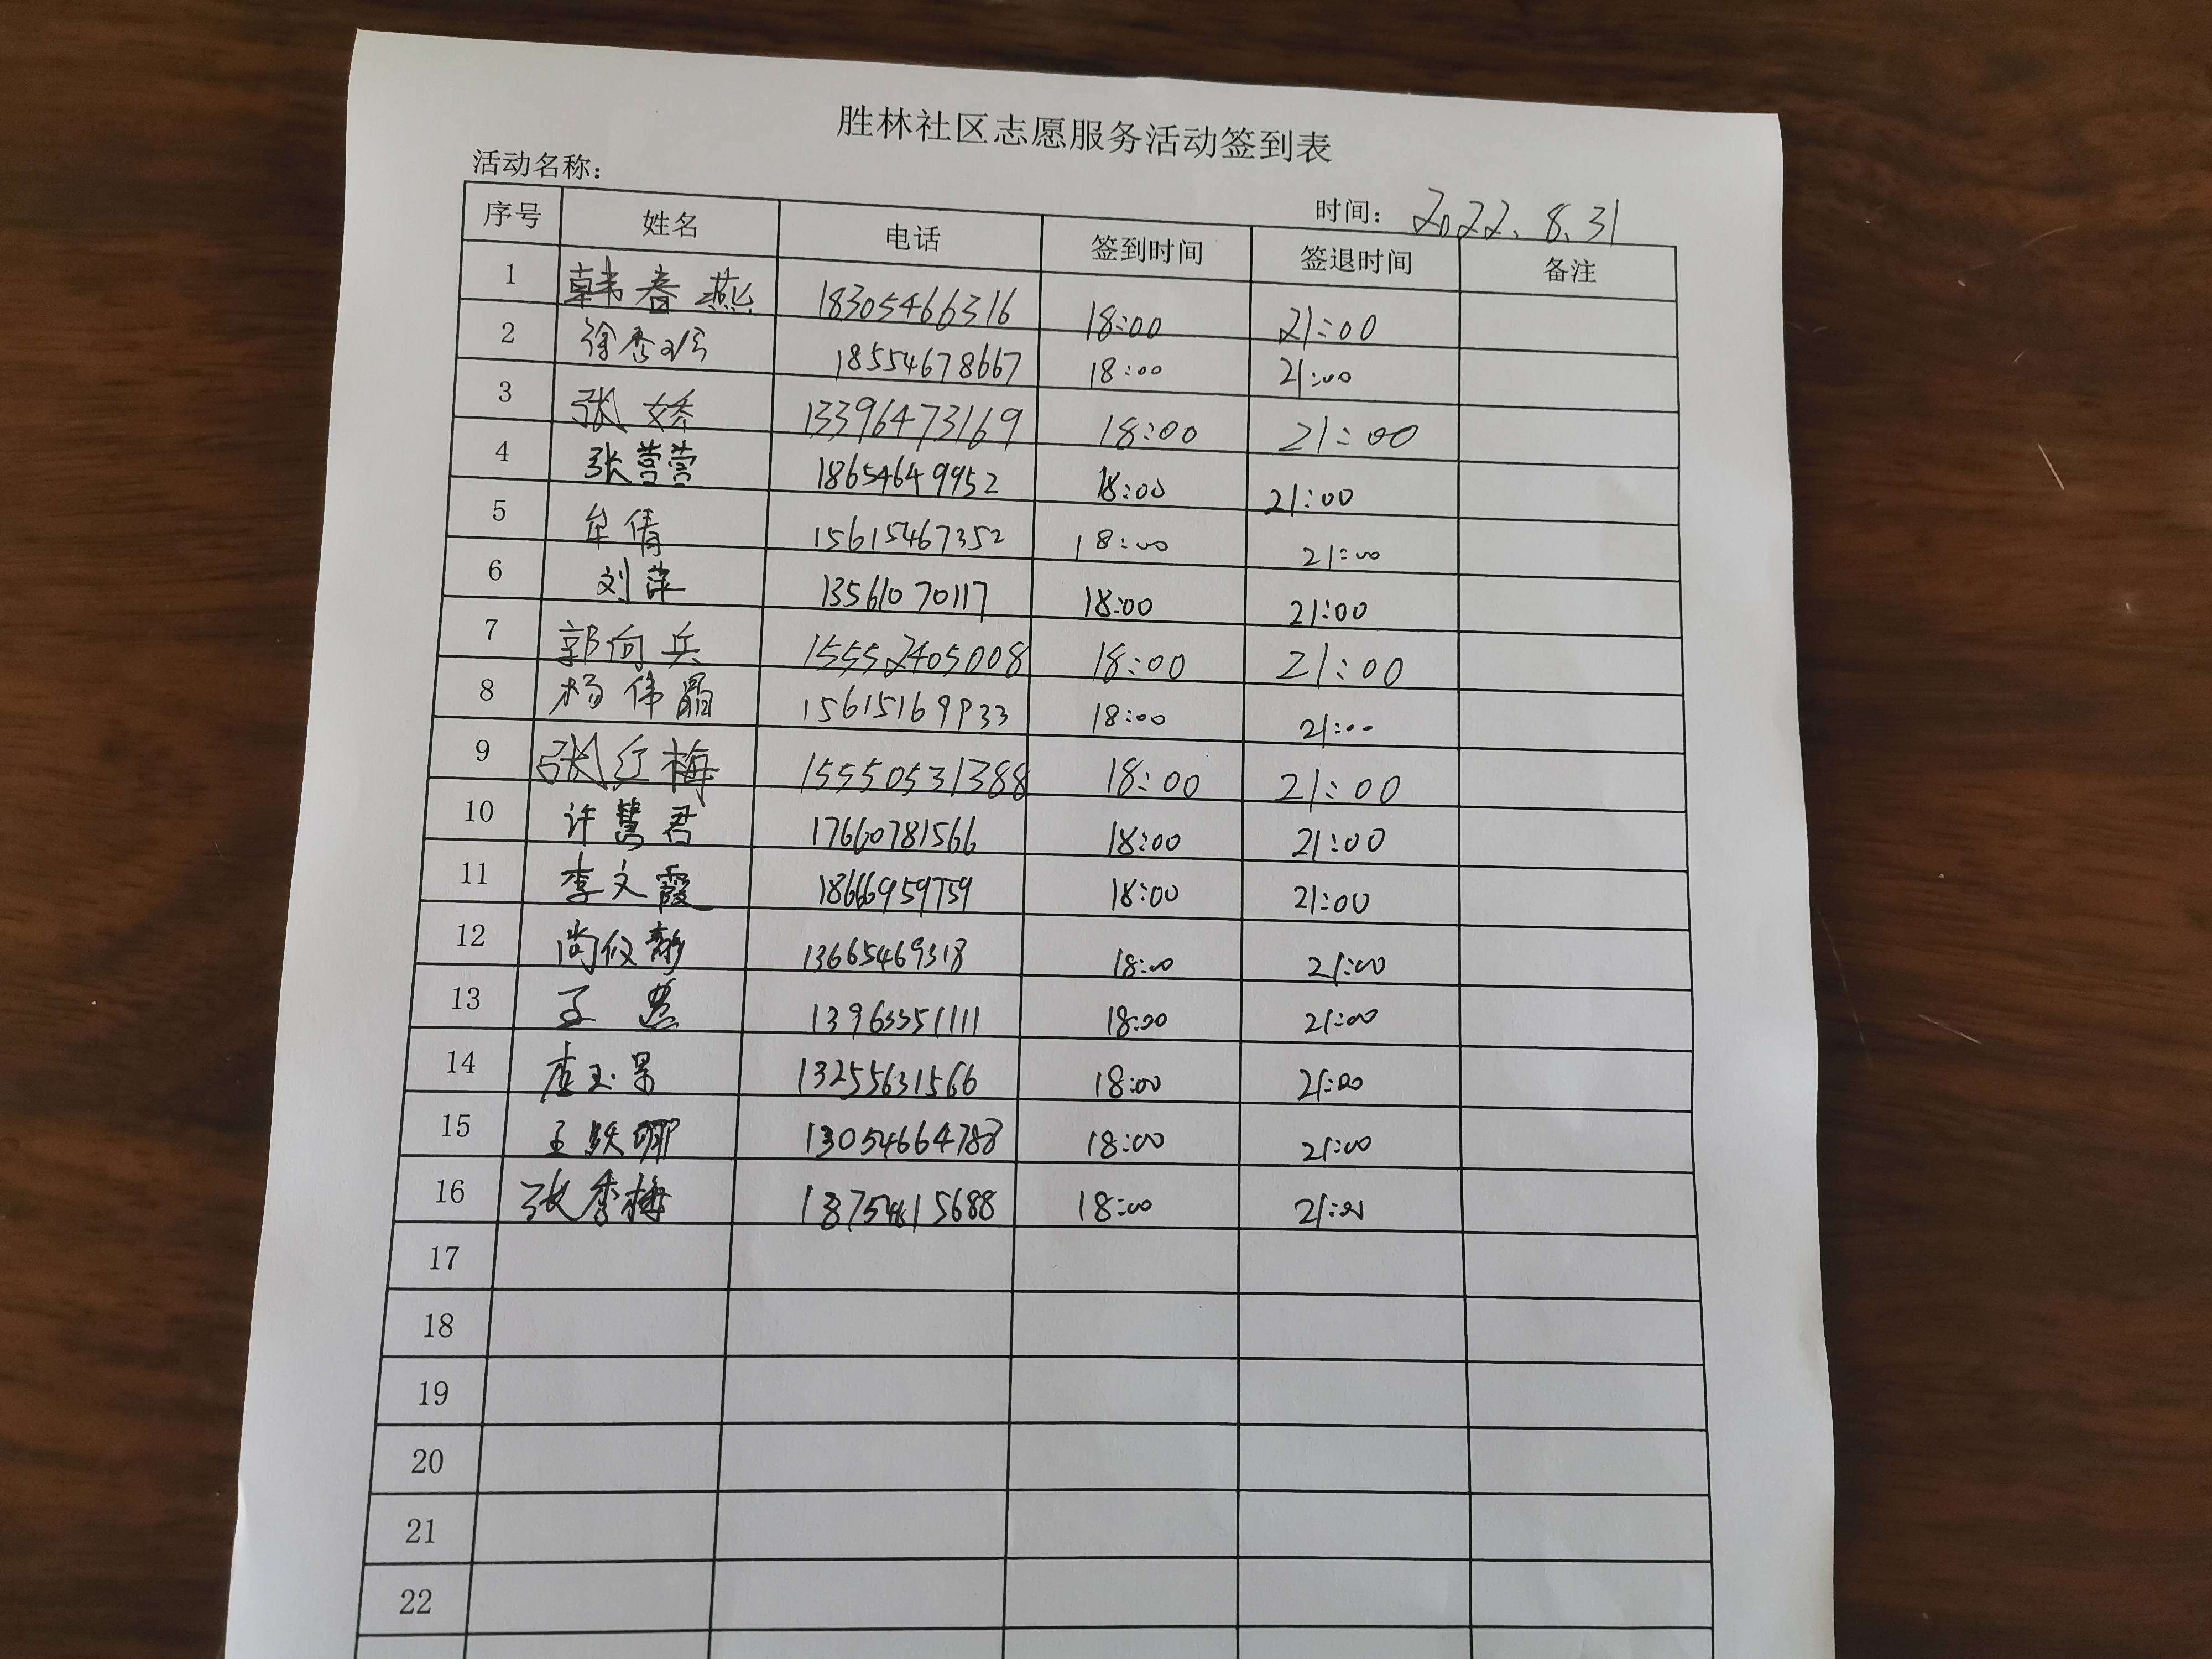 胜林社区志愿服务活动签到表
活动名称:
时间: 2022.8.31
序号 姓名 电话 签到时间 签退时间 备注
1 韩春燕 18305466316 18:00 21:00
2 徐秀玲 18554678667 18:00 21:00
3 张娇 13396473169 18:00 21:00
4 张营营 18654649952 18:00 21:00
5 牟倩 15615467352 18:00 21:00
6 刘萍 13561070117 18:00 21:00
7 郭向兵 15552405008 18:00 21:00
8 杨伟晶 15615169933 18:00 21:00
9 张红梅 15550531388 18:00 21:00
10 许慧君 17660781566 18:00 21:00
11 李文霞 18666959759 18:00 21:00
12 尚仪静 13665469318 18:00 21:00
13 13963551111 18:00 21:00
14 李玉景 13255631566 18:00 21:00
15 王 13054664788 18:00 21:00
16 张秀梅 18:00 21:00
17
18
19
20
21
22